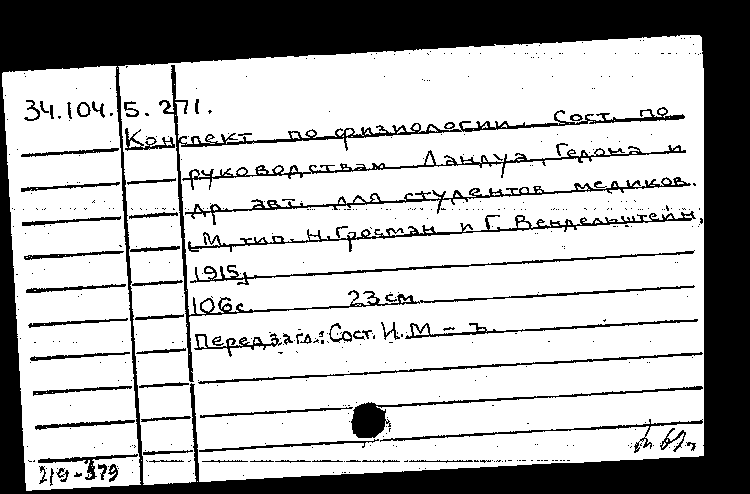 34.104.5.271.
Конспект по физиологии. Сост. по
руководствам Ландуа, Гедона и
др. авт. для студентов медиков.
[М., тип. Н. Гросман и Г. Вендельштейн,
1915].
106с. 23см.
Перед загл.: Сост. И. М - ъ.
219-379